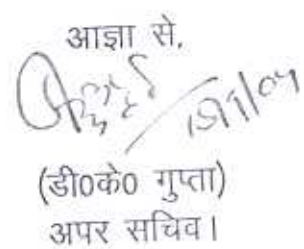 आज्ञा से,
(डी०के० गुप्ता)
अपर सचिव।